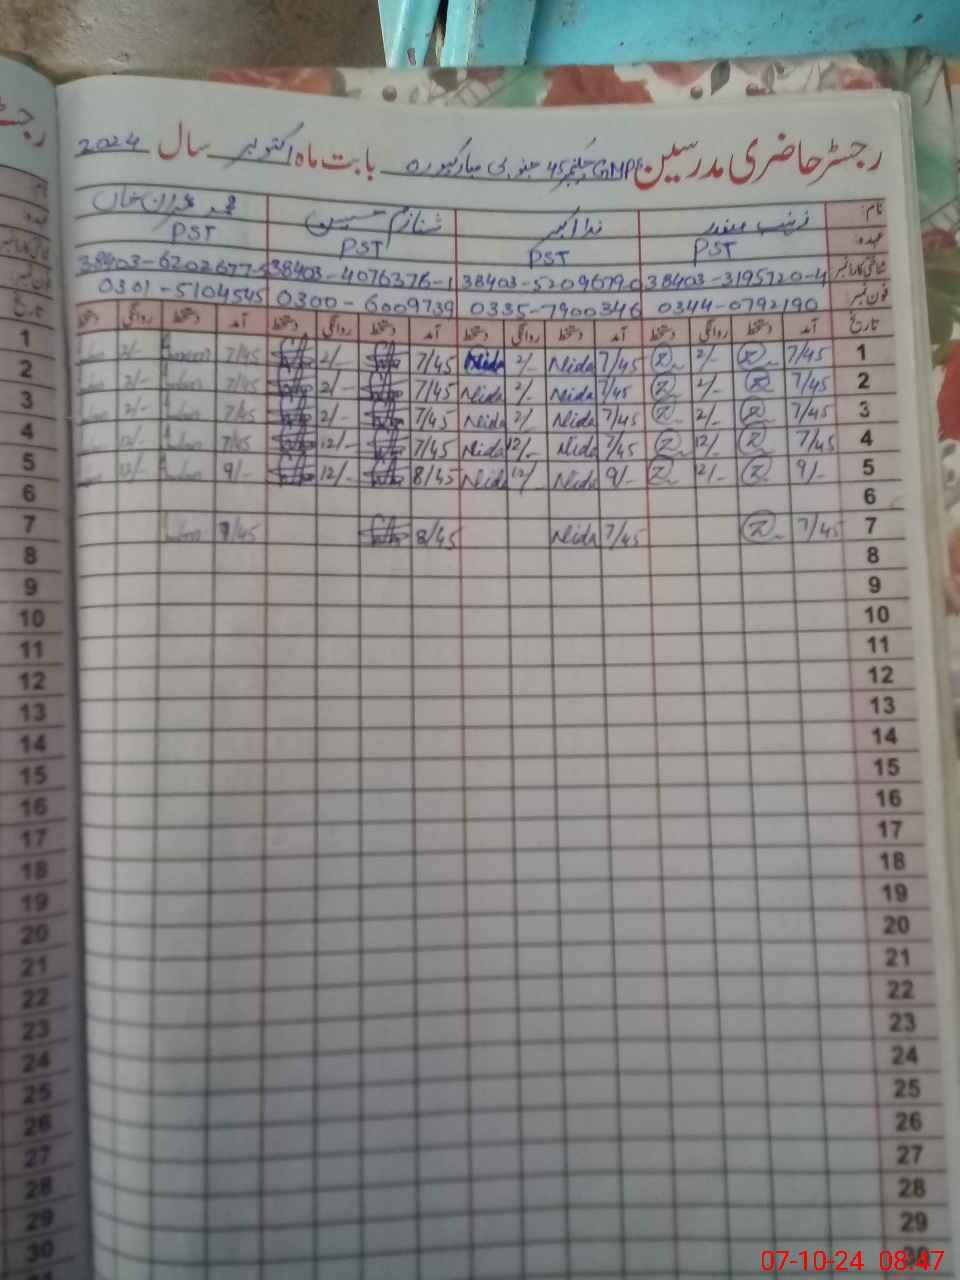 رجسٹر حاضری مدرسین GMPS چیلنجر 45 جنوبی مبارکپورہ بابت ماہ اکتوبر سال 2024
نام: زینب صفدر ندا اکبر شنازم حسین محمد عمران خان
عہدہ PST PST PST PST
شناختی کارڈ نمبر 38403-3195720-4 38403-5209679-0 38403-4076376-1 38403-6202677-5
فون نمبر 0344-0792190 0335-7900346 0300-6009739 0301-5104545
تاریخ آمد دستخط روانگی دستخط آمد دستخط روانگی دستخط آمد دستخط روانگی دستخط آمد دستخط روانگی دستخط
1 7/45 Z 2/- Z 7/45 Nida 2/- Nida 7/45 2/- 7/45 2/-
2 7/45 Z 2/- Z 7/45 Nida 2/- Nida 7/45 2/- 7/45 2/-
3 7/45 Z 2/- Z 7/45 Nida 2/- Nida 7/45 2/- 7/45 2/-
4 7/45 Z 12/- Z 7/45 Nida 12/- Nida 7/45 12/- 7/45 12/-
5 9/- Z 12/- Z 9/- Nida 12/- Nida 8/45 12/- 9/- 12/-
6
7 7/45 Z 7/45 Nida 8/45 7/45
8
9
10
11
12
13
14
15
16
17
18
19
20
21
22
23
24
25
26
27
28
29
30
رجسٹر
نام
عہدہ
فون نمبر
تاریخ
1
2
3
4
5
6
7
8
9
10
11
12
13
14
15
16
17
18
19
20
21
22
23
24
25
26
27
28
29
30
07-10-24 08:47